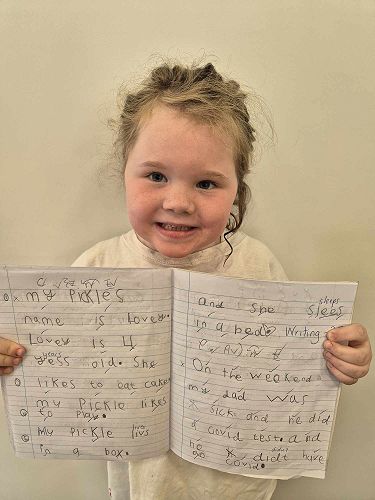 my Pickles
name is Lovey.
Lovey is 4
years
yess old. She
likes to eat cake.
my Pickle likes
to play.
My Pickle livs
in a box.
and she sleeps
slees
in a bed. Writing
On the weekend
my dad was
sick. and he did
a covid test. and
he didt have
go covid.